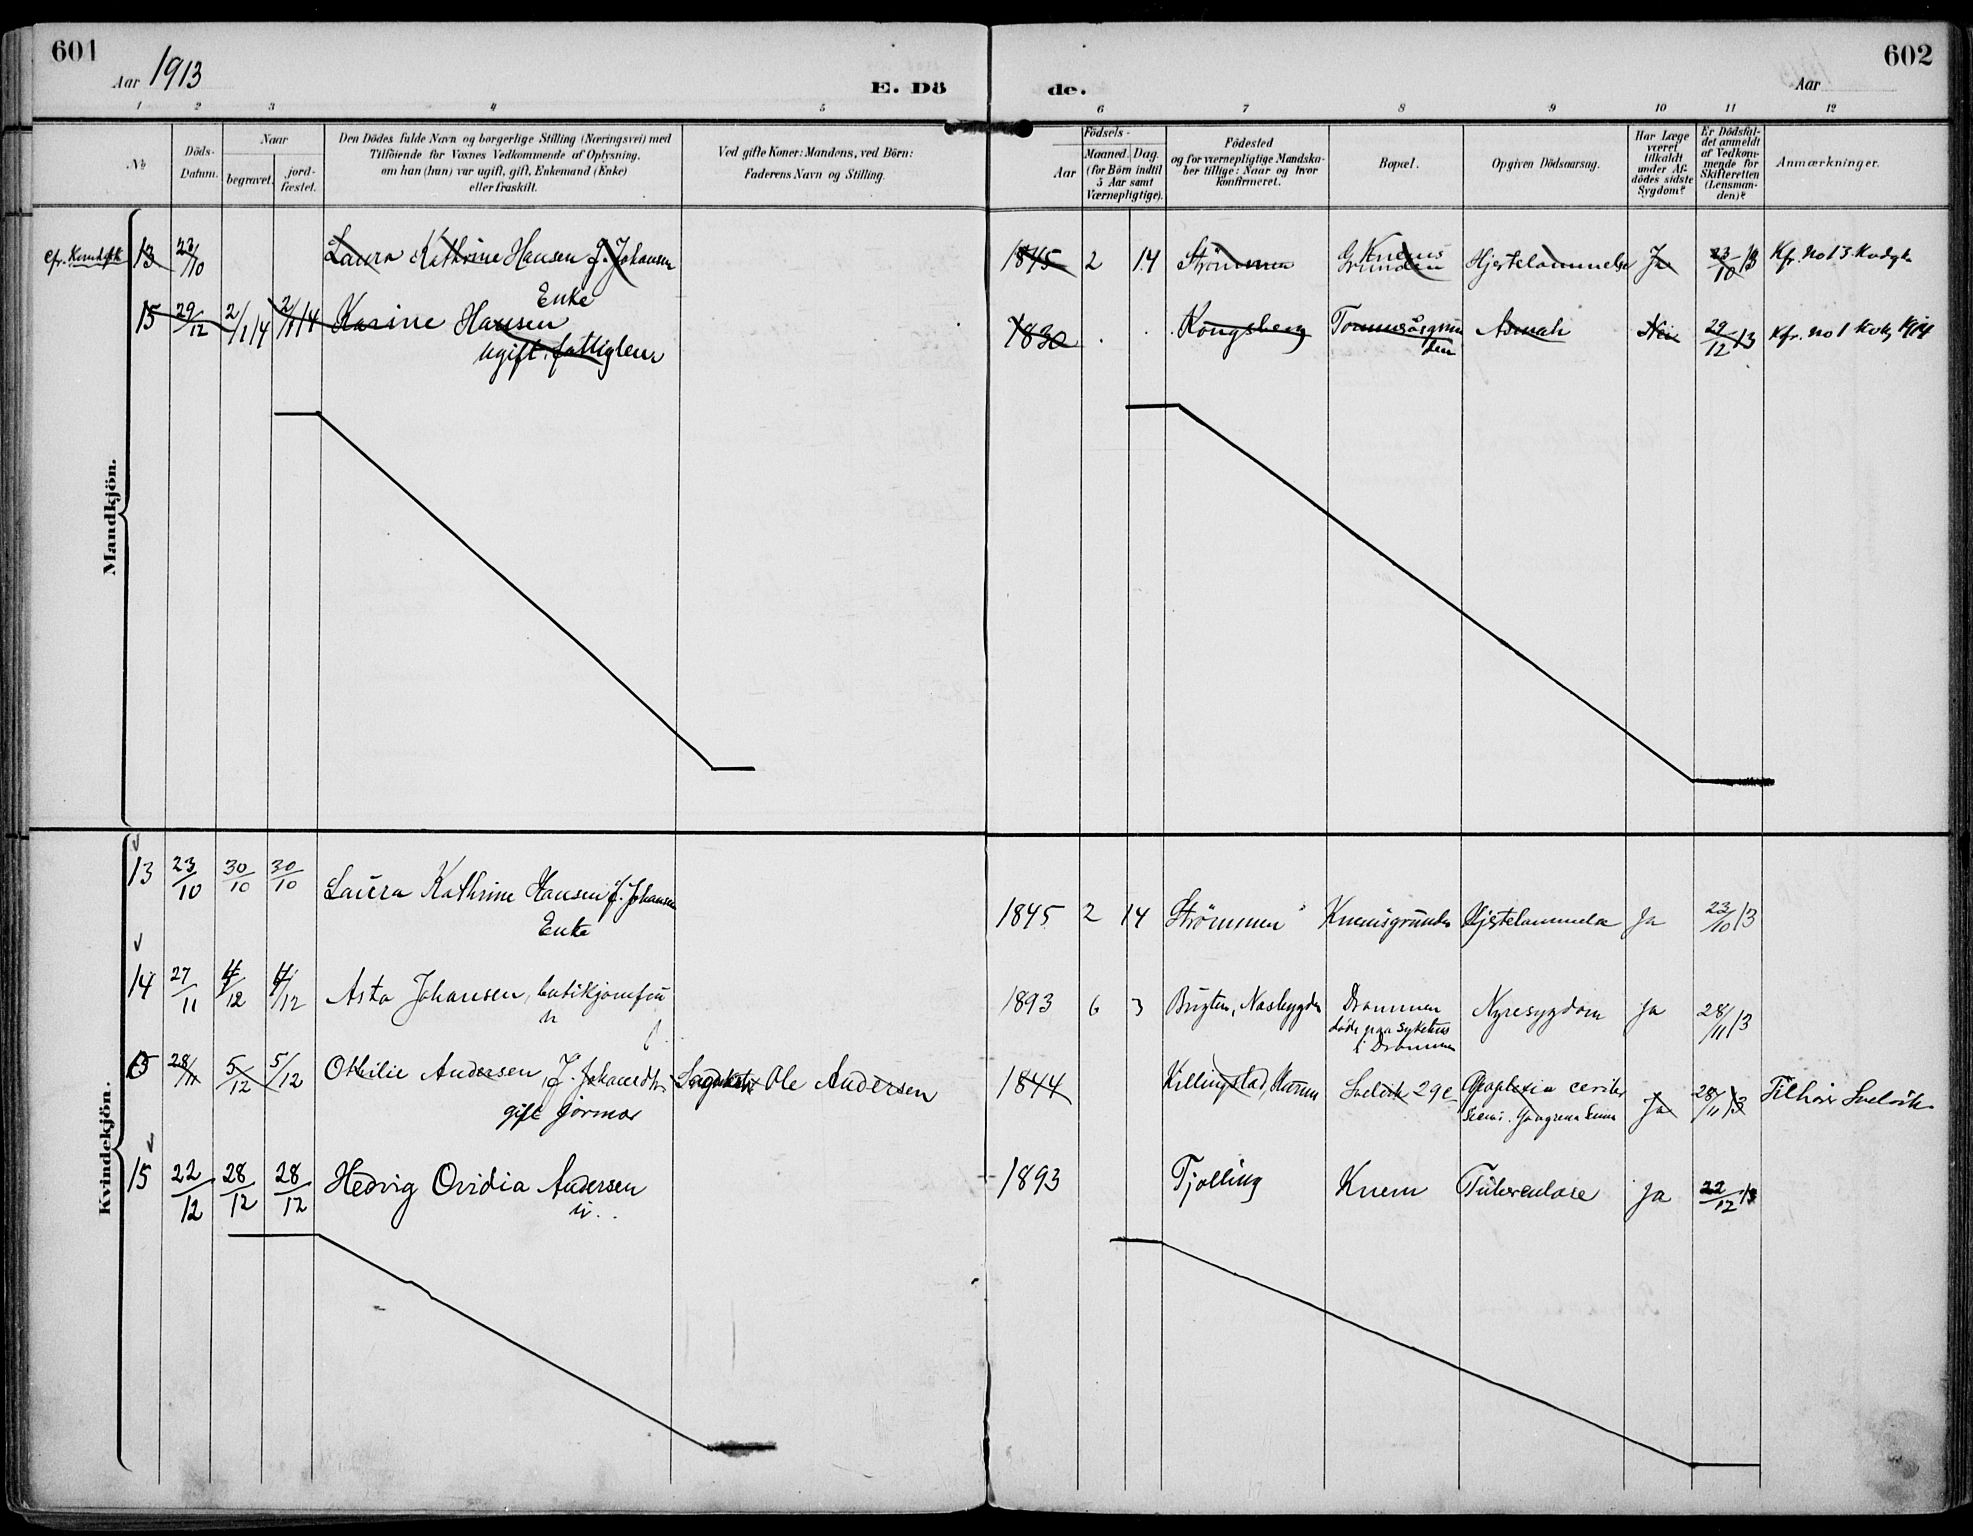 601
Aar 1913
E. Dö
de.
Aar
602
1 2 3 4 5 6 7 8 9 10 11 12
No
Döds-Datum.
Naar
begravet.
jord-fæstet.
Den Dödes fulde Navn og borgerlige Stilling (Næringsvei) med
Tilföiende for Voxnes Vedkommende af Oplysning,
om han (hun) var ugift, gift, Enkemand (Enke)
eller fraskilt.
Ved gifte Koner: Mandens, ved Börn:
Faderens Navn og Stilling.
Födsels-
Aar
Maaned. Dag.
(for Börn indtil
5 Aar samt
Værnepligtige).
Födested
og for værnepligtige Mandska-
ber tillige: Naar og hvor
konfirmeret.
Bopæl.
Opgiven Dödsaarsag.
Har Læge
været
tilkaldt
under Af-
dödes sidste
Sygdom?
Er Dödsfal-
det anmeldt
af Vedkom-
mende for
Skifteretten
(Lensman-
den)?
Anmærkninger.
Mandkjön.
13 23/10 Laura Kathrine Hansen f. Johansen
Enke
1845 2 14 Strömmen Knems Grunden Hjertelammelse Ja 23/10 13 Kfr. no 13
15 29/12 2/1 14 2/1 14 Karine Hansen
ugift, fattiglem
1830 Kongsberg Asmah Nei 29/12 13 Kfr. no 1 1914
Kvindekjön.
13 23/10 30/10 30/10 Laura Kathrine Hansen f. Johansen
Enke
1845 2 14 Strömmen Knemsgrunden Hjertelammelse Ja 23/10 13
14 27/11 4/12 4/12 Asta Johansen, butikjomfru
u
1893 6 3 Nesbygden Drammen
döde paa sykehus
i Drammen
Nyresygdom Ja 28/11 13
15 28/11 5/12 5/12 Othilie Andersen, f.
gift
Ole Andersen
1844 Killingstad, Svelvik Apoplexia Ja 28/11 13 Tilhörer Svelvik
15 22/12 28/12 28/12 Hedvig Ovidia Andersen
u.
1893 Tjølling Knem Tuberculose Ja 22/12 13